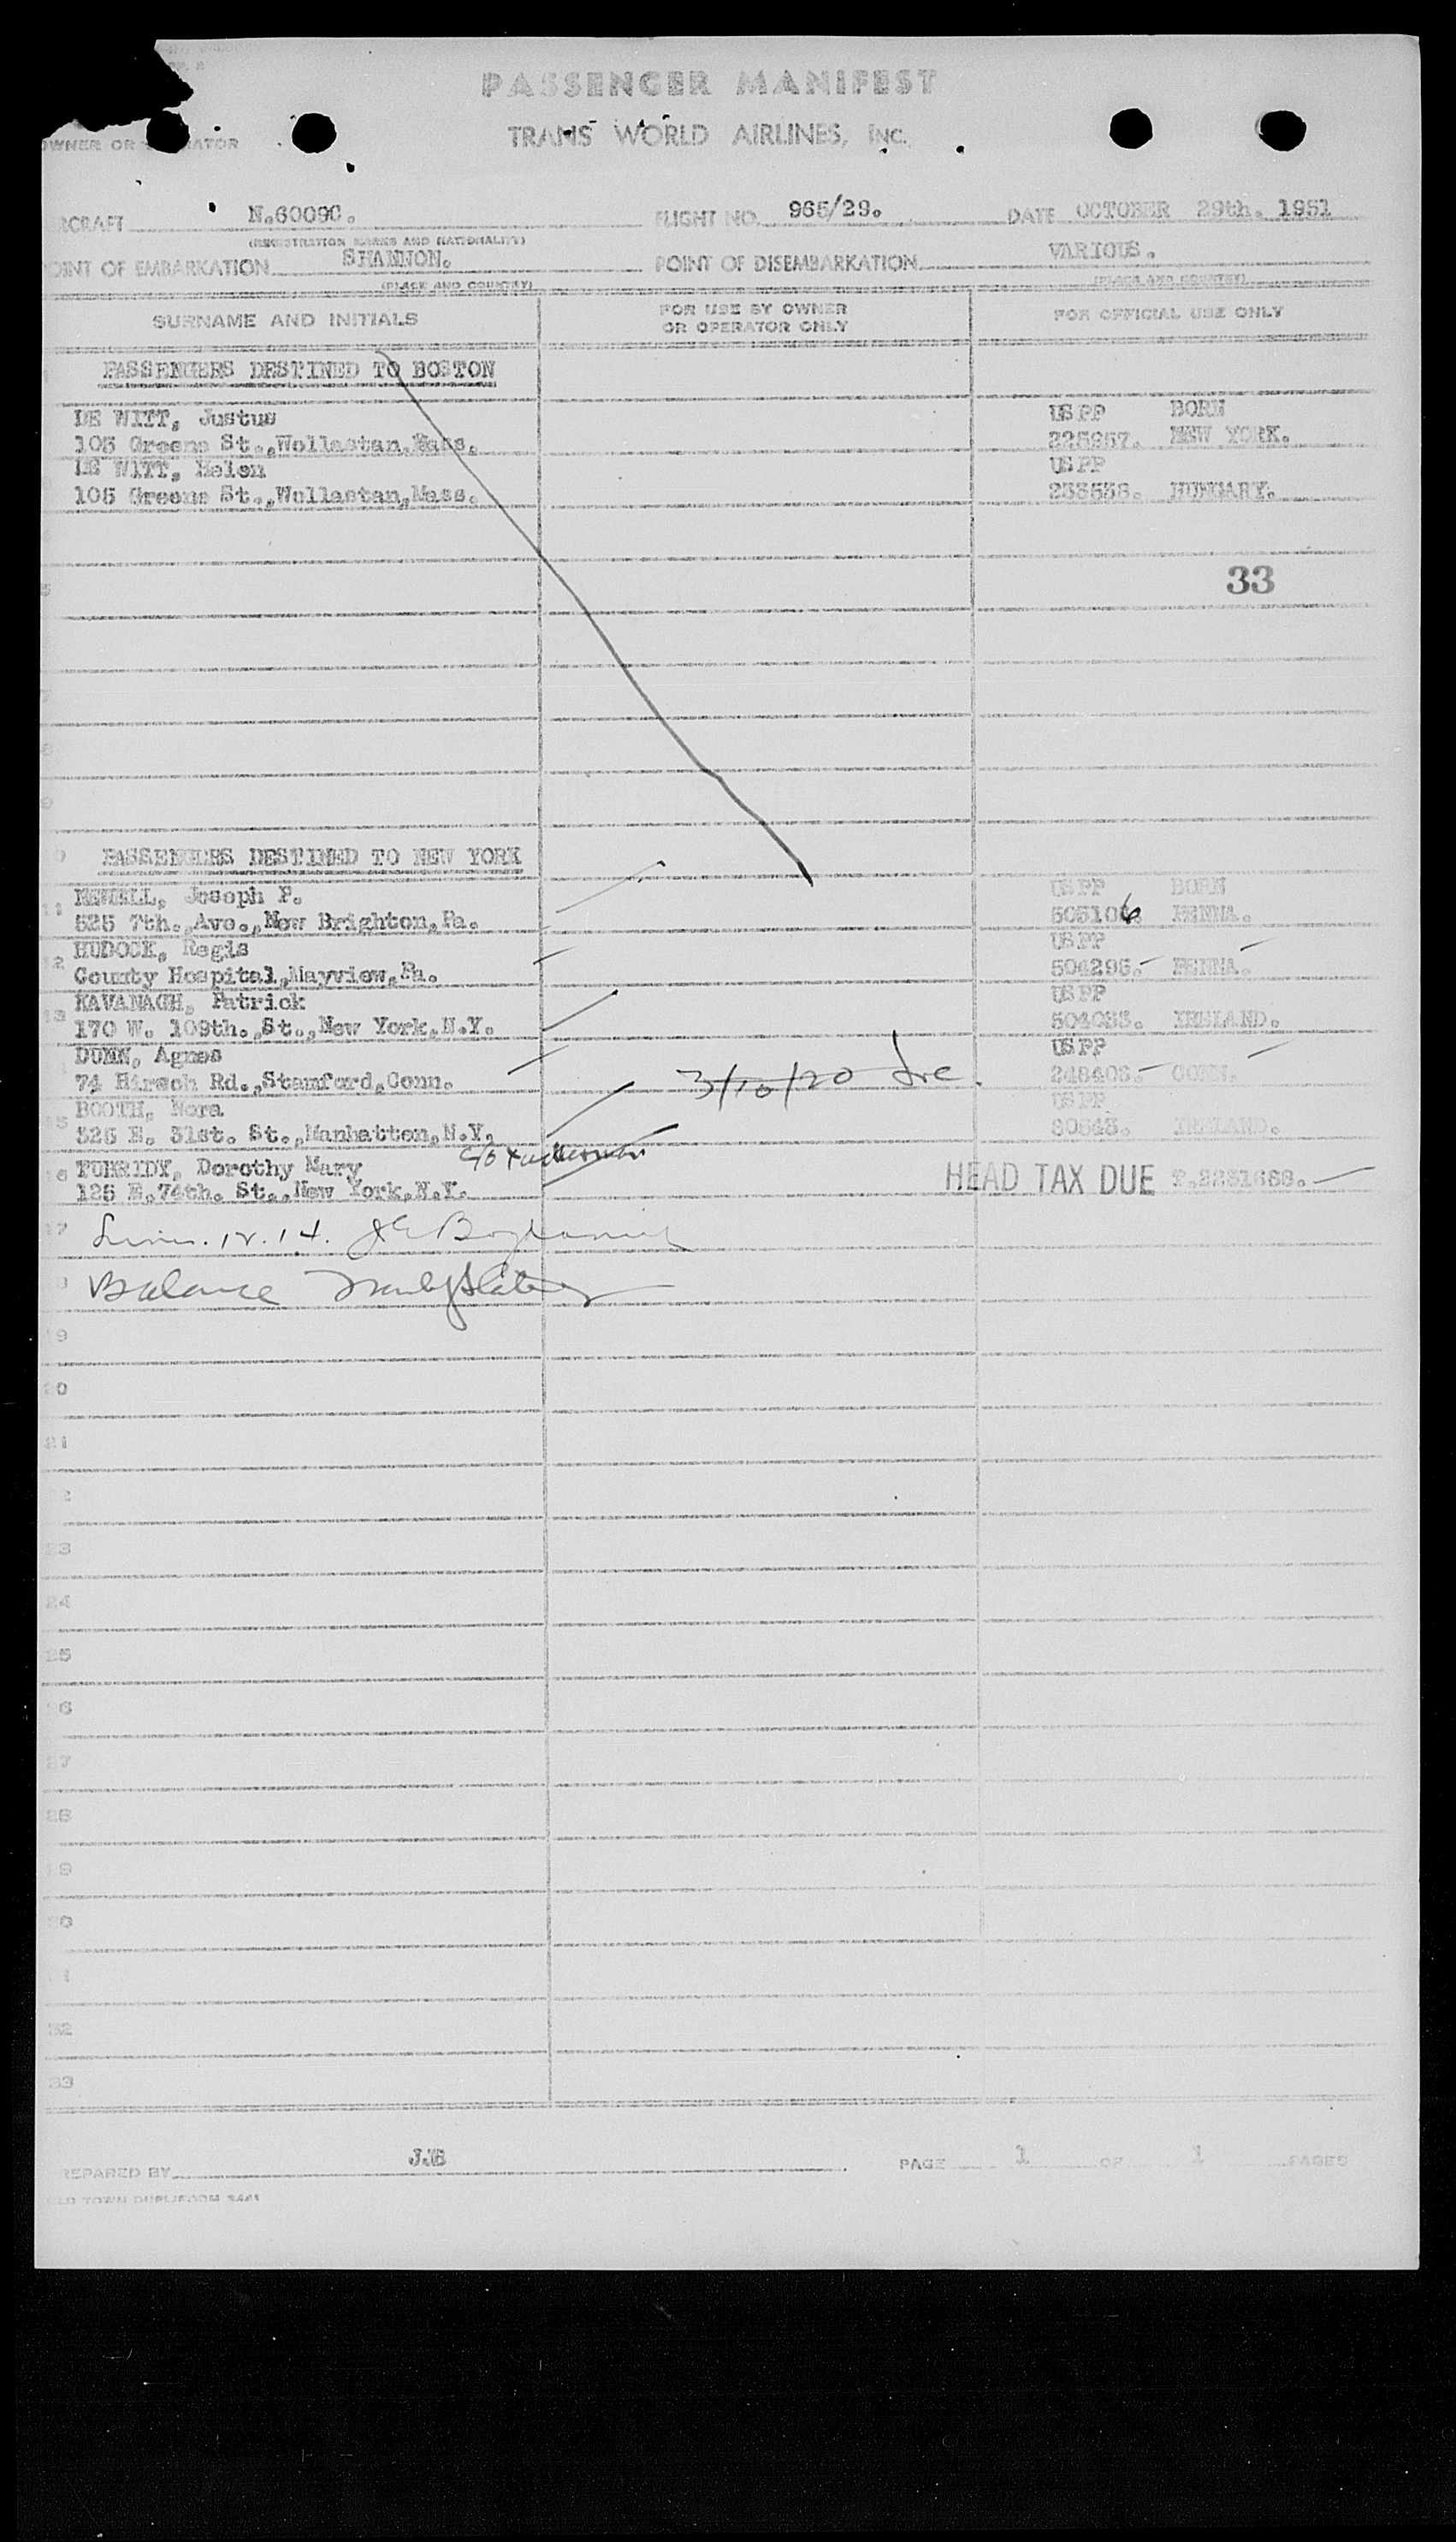 PASSENGER MANIFEST
TRANS WORLD AIRLINES, INC.
OWNER OR OPERATOR
RCRAFT N.6009C. FLIGHT NO. 965/29. DATE OCTOBER 29th. 1951
(REGISTRATION MARKS AND NATIONALITY)
OINT OF EMBARKATION SHANNON. POINT OF DISEMBARKATION VARIOUS.
(PLACE AND COUNTRY) (PLACE AND COUNTRY)
SURNAME AND INITIALS FOR USE BY OWNER OR OPERATOR ONLY FOR OFFICIAL USE ONLY
PASSENGERS DESTINED TO BOSTON
DE WITT, Justus USPP BORN
105 Greene St.,Wollastan,Mass. 225957. NEW YORK.
DE WITT, Helen USPP
105 Greene St.,Wollastan,Mass. 233538. HUNGARY.
33
PASSENGERS DESTINED TO NEW YORK
Joseph P. USPP BORN
11 525 7th.,Ave.,New Brighton,Pa. 505106 PENNA.
12 HUDOCK, Regis USPP
County Hospital,Mayview,Pa. 504295. PENNA.
13 KAVANAGH, Patrick USPP
170 W. 109th.,St.,New York,N.Y. 504033. IRELAND.
DUNN, Agnes USPP
74 Hirsch Rd.,Stamford,Conn. 3/10/20 248403. CONN.
BOOTH, Nora USPP
15 325 E. 31st. St.,Manhatten,N.Y. 80848. IRELAND.
c/o
16 TUBRIDY, Dorothy Mary
125 E.74th. St.,New York,N.Y. HEAD TAX DUE T.2231688.
17 12.14.
Balance
19
20
21
2
23
24
25
26
27
28
29
30
1
32
33
REPARED BY JJB PAGE 1 OF 1 PAGES
LD TOWN